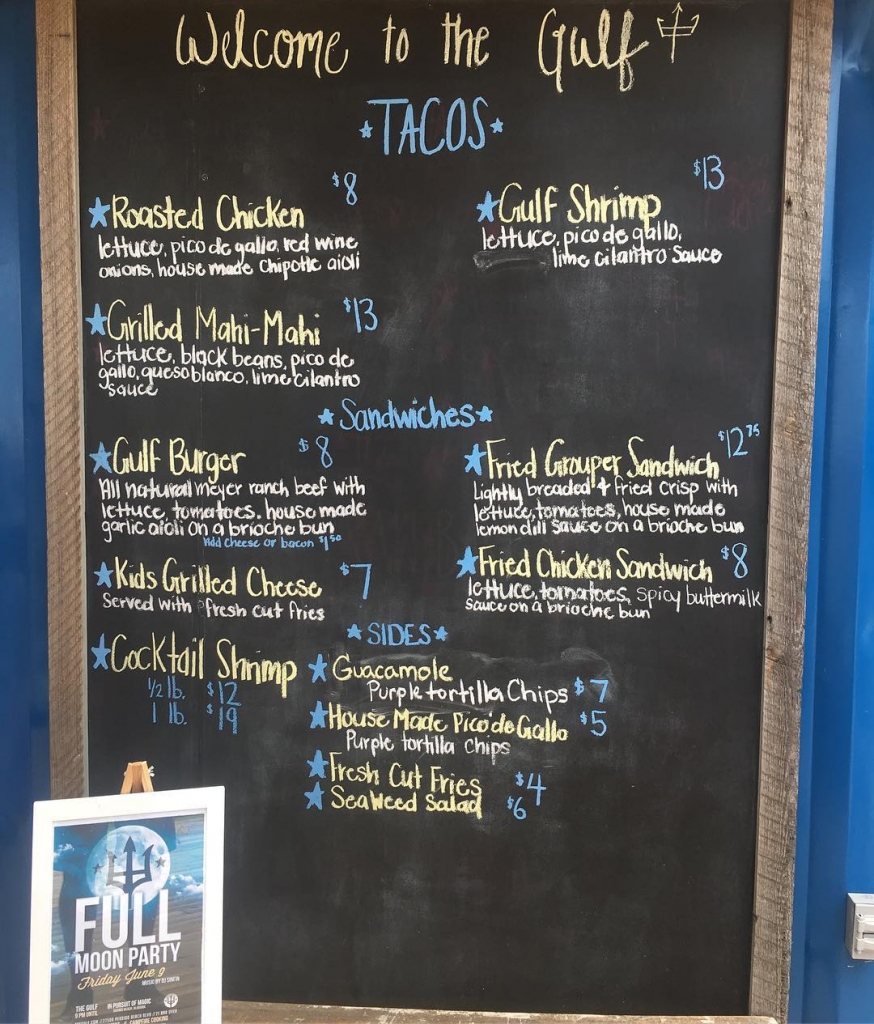 Welcome to the Gulf
TACOS
$8
Roasted Chicken
lettuce, pico de gallo, red wine
onions, house made Chipotle aioli
$13
Gulf Shrimp
lettuce, pico de gallo,
lime cilantro sauce
$13
Grilled Mahi-Mahi
lettuce, black beans, pico de
gallo, queso blanco, lime cilantro
sauce
Sandwiches
$8
Gulf Burger
All natural meyer ranch beef with
lettuce, tomatoes, house made
garlic aioli on a brioche bun
Add Cheese or bacon $1.50
$12.75
Fried Grouper Sandwich
Lightly breaded & fried crisp with
lettuce, tomatoes, house made
lemon dill sauce on a brioche bun
Kids Grilled Cheese $7
Served with fresh cut fries
Fried Chicken Sandwich $8
lettuce, tomatoes, spicy buttermilk
sauce on a brioche bun
Cocktail Shrimp
1/2 lb. $12
1 lb. $19
SIDES
Guacamole
Purple tortilla Chips $7
House Made Pico de Gallo $5
Purple tortilla chips
Fresh Cut Fries $4
Seaweed Salad $6
FULL
MOON PARTY
Friday June 9
MUSIC BY
THE GULF
IN PURSUIT OF MAGIC
CAMPFIRE COOKING